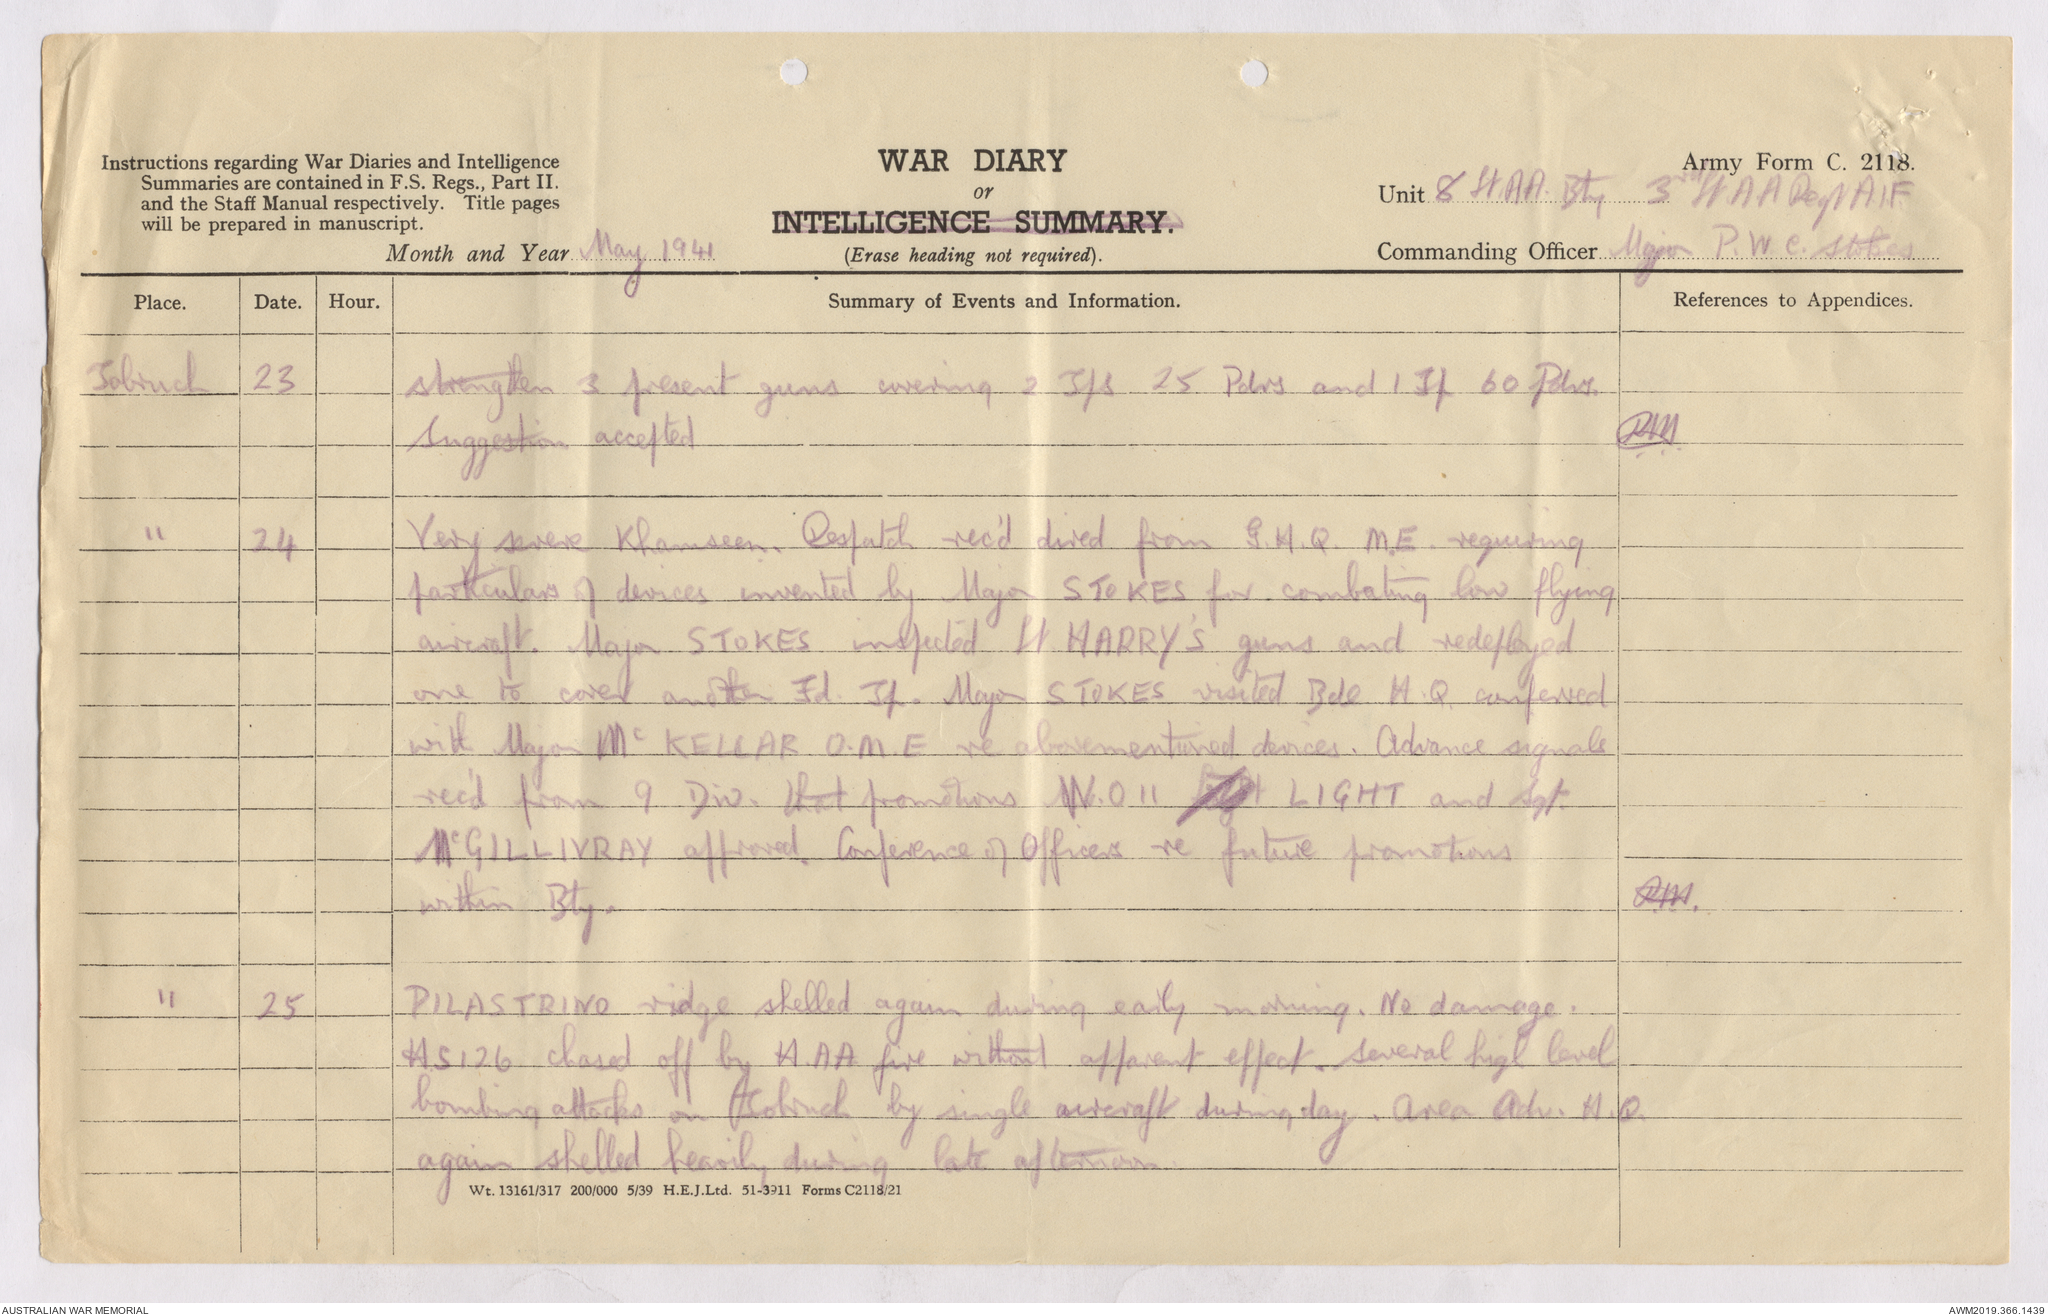 Instructions regarding War Diaries and Intelligence
Summaries are contained in F.S. Regs., Part II.
and the Staff Manual respectively. Title pages
will be prepared in manuscript.
Month and Year May 1941
WAR DIARY
or
INTELLIGENCE SUMMARY.
(Erase heading not required).
Army Form C. 2118.
Unit 8 Lt AA. Bty 3rd Lt A A Regt AIF
Commanding Officer Major P.W.C. Stokes
Place. Date. Hour. Summary of Events and Information. References to Appendices.
Tobruch 23 strengthen 3 present guns covering 2 Tps 25 Pdrs and 1 Tp 60 Pdrs.
Suggestion accepted
" 24 Very severe Khamseen. Despatch rec'd direct from G.H.Q. M.E. requiring
particulars of devices invented by Major STOKES for combating low flying
aircraft. Major STOKES inspected Lt HARRY'S guns and redeployed
one to cover another Fd. Tp. Major STOKES visited Bde H.Q. conferred
with Major McKELLAR O.M.E re abovementioned devices. Advance signals
rec'd from 9 Div. that promotions W.O 11 LIGHT and Sgt.
McGILLIVRAY approved. Conference of Officers re future promotions
within Bty.
" 25 PILASTRINO ridge shelled again during early morning. No damage.
HS126 chased off by H.AA. fire without apparent effect. Several high level
bombing attacks on Tobruch by single aircraft during day. Area Adv. H.Q.
again shelled heavily during late afternoon.
Wt. 13161/317 200/000 5/39 H.E.J.Ltd. 51-3911 Forms C2118/21
AUSTRALIAN WAR MEMORIAL
AWM2019.366.1439